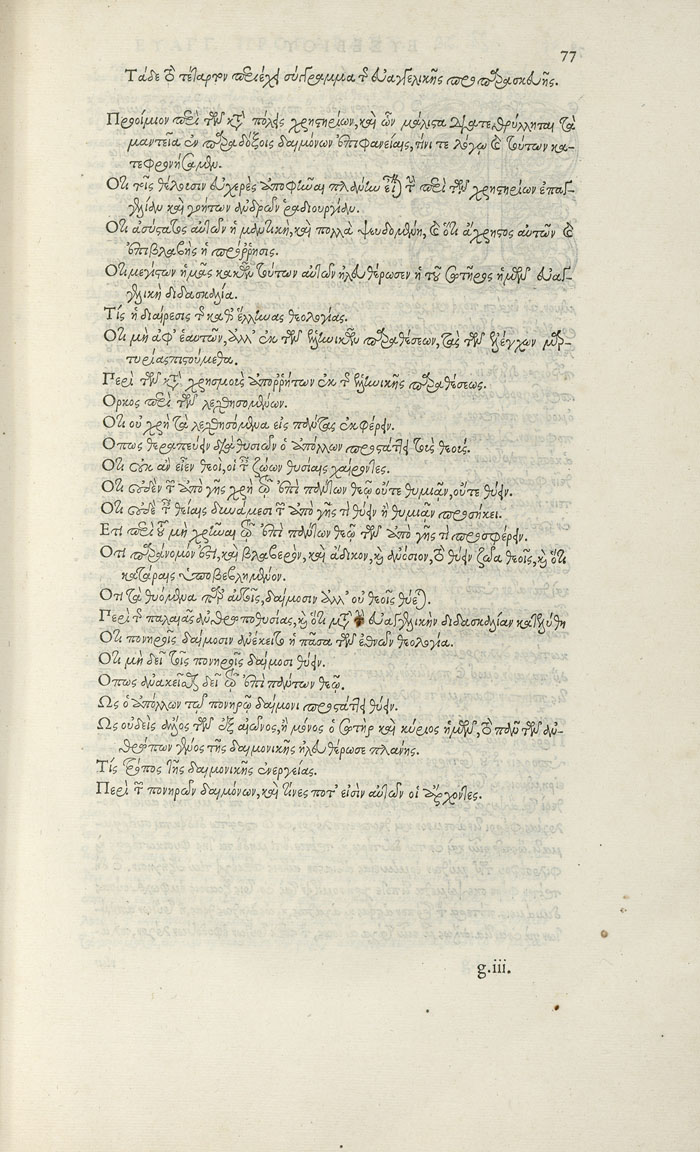 77
Τάδε τὸ τέταρτον περιέχει σύγγραμμα τῆς εὐαγγελικῆς προπαρασκευῆς.
Προοίμιον περὶ τῶν κατὰ πόλεις χρηστηρίων, καὶ ὧν μάλιστα διατεθρύλληται τὰ
μαντεῖα ἐν παραδόξοις δαιμόνων ἐπιφανείαις, τίνι τε λόγῳ καὶ τούτων κα-
τεφρονήσαμεν.
Οτι τοῖς θέλουσιν εὐχερὲς ἀποφῆναι πλάνην εἶναι τὰ περὶ τῶν χρηστηρίων ἐπαγ-
γελίαν καὶ γοήτων ἀνδρῶν ῥᾳδιουργίαν.
Οτι ἀσύστατος αὐτῶν ἡ μαντικὴ, καὶ πολλὰ ψευδομένη, καὶ ὅτι ἄχρηστος αὐτῶν καὶ
ἐπιβλαβὴς ἡ πρόρρησις.
Οτι μεγίστων ἡμᾶς κακῶν τούτων αὐτῶν ἠλευθέρωσεν ἡ τοῦ σωτῆρος ἡμῶν εὐαγ-
γελικὴ διδασκαλία.
Τίς ἡ διαίρεσις τῆς καθ' ἕλληνας θεολογίας.
Οτι μὴ ἀφ' ἑαυτῶν, ἀλλ' ἐκ τῶν ἑλληνικῶν παραθέσεων, τὰς τῶν ἐλέγχων μαρ-
τυρίας πιστούμεθα.
Περὶ τῶν κατὰ χρησμοὺς ἀπορρήτων ἐκ τῆς ἑλληνικῆς παραθέσεως.
Ορκος περὶ τῶν λεχθησομένων.
Οτι οὐ χρὴ τὰ λεχθησόμενα εἰς πάντας ἐκφέρειν.
Οπως θεραπεύειν διὰ θυσιῶν ὁ ἀπόλλων προστάττει τοὺς θεούς.
Οτι οὐκ ἂν εἶεν θεοὶ, οἱ ταῖς ζώων θυσίαις χαίροντες.
Οτι οὐδὲν τῶν ἀπὸ γῆς χρὴ τῷ ἐπὶ πάντων θεῷ οὔτε θυμιᾶν, οὔτε θύειν.
Οτι οὐδὲ ταῖς θείαις δυνάμεσι τῶν ἀπὸ γῆς τὶ θύειν ἢ θυμιᾶν προσήκει.
Ετι περὶ τοῦ μὴ χρῆναι τῷ ἐπὶ πάντων θεῷ τῶν ἀπὸ γῆς τὶ προσφέρειν.
Οτι παράνομόν ἐστι, καὶ βλαβερὸν, καὶ ἄδικον, καὶ ἀνόσιον, τὸ θύειν ζῶα θεοῖς, καὶ ὅτι
κατάραις ὑποβεβλημένον.
Οτι τὰ θυόμενα παρ' αὐτοῖς, δαίμοσιν ἀλλ' οὐ θεοῖς θύεται.
Περὶ τῆς παλαιᾶς ἀνθρωποθυσίας, καὶ ὅτι μετὰ τὴν εὐαγγελικὴν διδασκαλίαν κατελύθη
Οτι πονηροῖς δαίμοσιν ἀνέκειτο ἡ πᾶσα τῶν ἐθνῶν θεολογία.
Οτι μὴ δεῖ τοῖς πονηροῖς δαίμοσι θύειν.
Οπως ἀνακεῖσθαι δεῖ τῷ ἐπὶ πάντων θεῷ.
Ως ὁ ἀπόλλων τῷ πονηρῷ δαίμονι προστάττει θύειν.
Ως οὐδεὶς ἄλλος τῶν ἐξ αἰῶνος, ἢ μόνος ὁ σωτὴρ καὶ κύριος ἡμῶν, τὸ πᾶν τῶν ἀν-
θρώπων γένος τῆς δαιμονικῆς ἠλευθέρωσε πλάνης.
Τίς τρόπος τῆς δαιμονικῆς ἐνεργείας.
Περὶ τῶν πονηρῶν δαιμόνων, καὶ τίνες ποτ' εἰσὶν αὐτῶν οἱ ἄρχοντες.
g.iii.